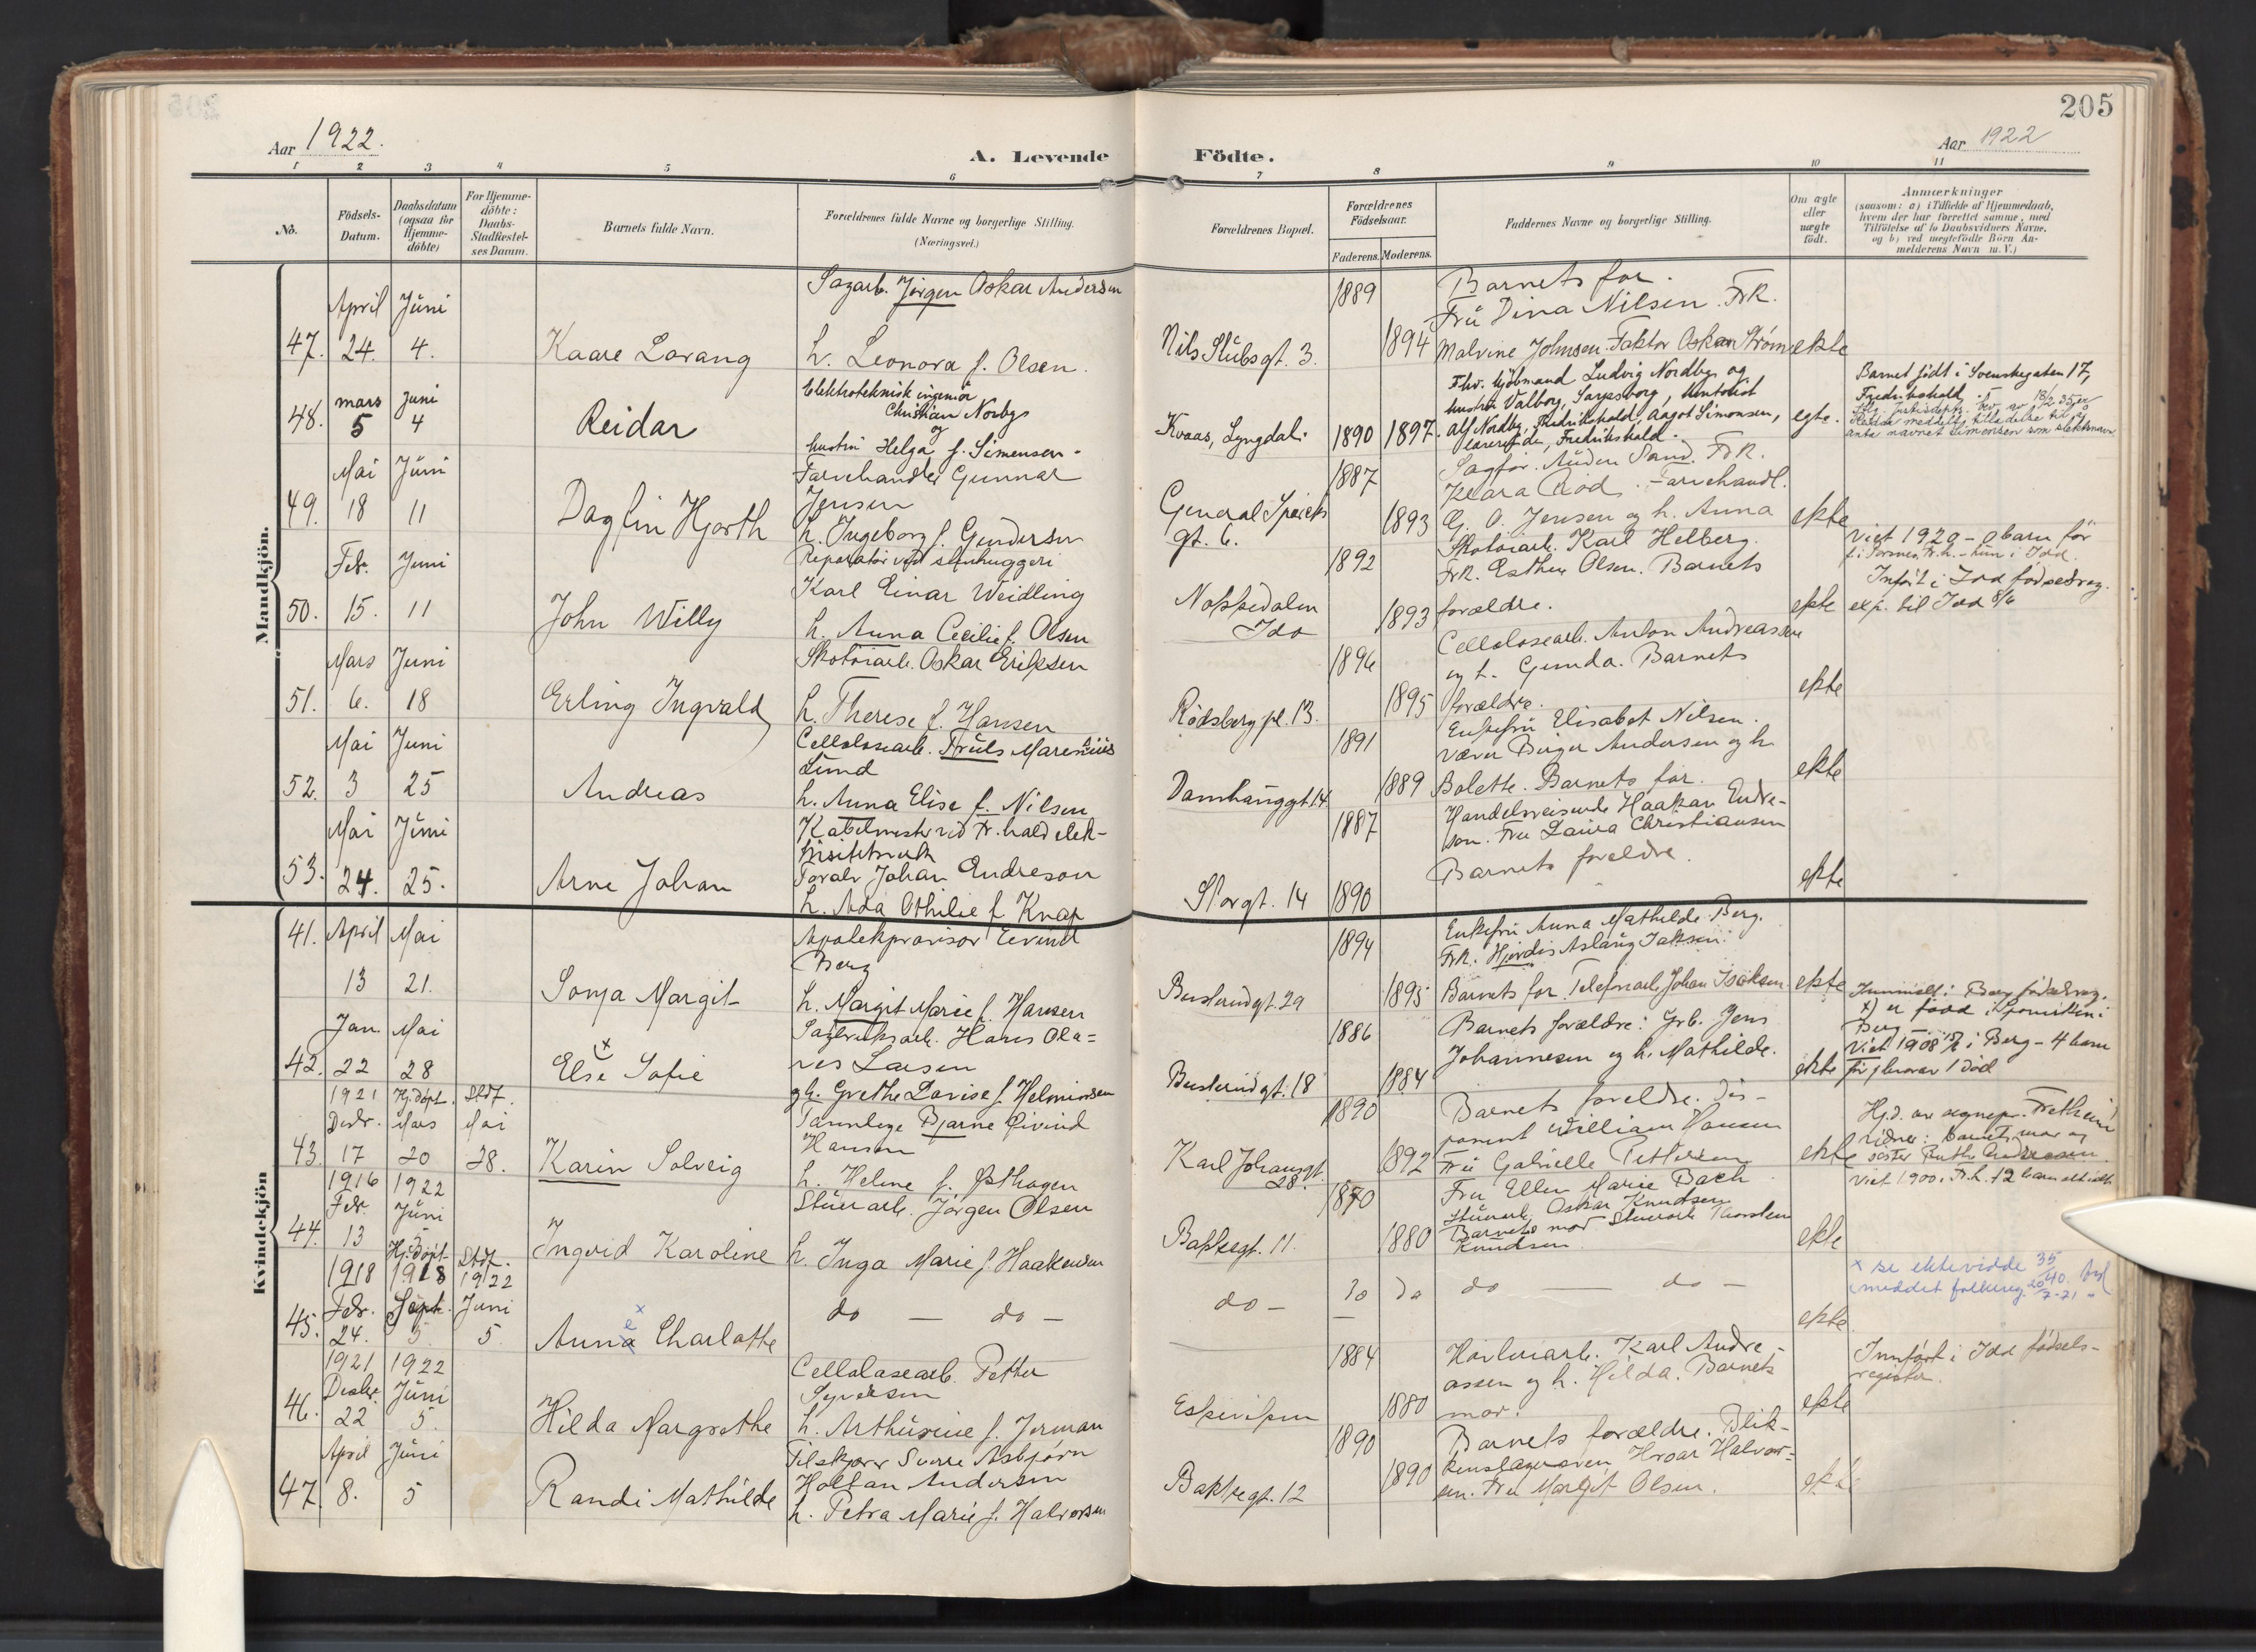 205
Aar 1922.
A. Levende
Födte.
Aar 1922
1 2 3 4 5 6 7 8 9 10 11
No.
Födsels-
Datum.
Daabsdatum
(ogsaa for
Hjemme-
döbte)
For Hjemme-
döbte:
Daabs-
Stadfæstel-
ses Datum.
Barnets fulde Navn.
Forældrenes fulde Navne og borgerlige Stilling.
(Næringsvei.)
Forældrenes Bopæl.
Forældrenes
Födselsaar.
Faderens. Moderens.
Faddernes Navne og borgerlige Stilling.
Om ægte
eller
uægte
födt.
Anmærkninger
(saasom: a) i Tilfælde af Hjemmedaab,
hvem der har forrettet samme, med
Tilföielse af to Daabsvidners Navne,
og b) ved uægtefödte Börn An-
melderens Navn m. V.)
Mandkjön.
April Juni
47. 24. 4.
Kaare Lorang
Sagarb. Jørgen Oskar Andersen
h. Leonora f. Olsen.
Nils Stubsgt. 3.
1889
1894
Barnets far.
Fru Dina Nilsen. Frk.
Malvine Johnsen. Faktor Oskar Strøm
ekte
mars juni
48. 5 4
Reidar
Elektroteknisk ingeniør
Christian Norbys
og
hustru Helga f. Simensen.
Kvaas, Lyngdal.
1890 1897.
Fhv. kjøbmand Ludvig Nordbys og
hustru Valborg, Sarpsborg,
Alf Nordby, Fredrikshald, Aagot Simonsen,
Fredrikshald.
egte.
Barnet født i Svenskegaten 17,
Fredrikshald.
anta navnet Simensen som slektsnavn
Mai Juni
49. 18 11
Dagfin Hjorth
Farvehandler Gunnar
Jensen
h. Ingeborg f. Gundersen
General Spørcks
gt. 6.
1887
1893
Sagfør. Auden Sand. Frk.
Klara Rød. Farvehandl.
G. O. Jensen og h. Anna
ekte
Febr. Juni
50. 15. 11
John Willy
Reparatør ved stenhuggeri
Karl Einar Weidling
h. Anna Cecilie f. Olsen
Nokkedalen
Idd
1892
1893
Skotøiarb. Karl Helberg.
Frk. Esther Olsen. Barnets
forældre.
ekte
Viet 1920 - 0 barn før
Fr.h. - hun i Idd.
Inført i Idd fødselsreg.
exp. til Idd 8/6
Mars Juni
51. 6. 18
Erling Ingvald
Skotøiarb. Oskar Eriksen
h. Therese f. Hansen
Rødsberg pl. 13.
1896
1895
Cellolosearb. Anton Andreassen
og h. Gunda. Barnets
forældre.
ekte
Mai Juni
52. 3 25
Andreas
Cellolosearb. Truls Marenius
Lund
h. Anna Elise f. Nilsen
Damhauggt. 14
1891
1889
Enkefru Elisabet Nilsen.
Væver Birger Andersen og h.
Bolette. Barnets far.
ekte
Mai Juni
53. 24. 25.
Arne Johan
Kabelmester ved Fr.hald elek-
trisitetsverk
Toralv Johan Endreson
h. Ada Othilie f. Knap
Storgt. 14
1887
1890
Handelsreisende Haakan Endre-
son. Fru Laura Christiansen
Barnets foreldre.
ekte
Kvindekjön
41. April Mai
13 21.
Sonja Margit
Apotekprovisor Eivind
Berg
h. Margit Marie f. Hansen
Busterudgt. 29
1894
1895
Enkefru Anna Mathilde Berg.
Frk. Hjørdis Aslaug Isaksen.
Barnets far. Telefonarb. Johan Isaksen
ekte
Jan. Mai
42. 22 28
Else x Sofie
Sagbruksarb. Hans Ola=
ves Larsen
h. Grethe Lovise f. Helminsen
Busterudgt. 18
1886
1884
Barnets forældre: Grb. Jens
Johannesen og h. Mathilde.
ekte
Innmeldt i Berg fødselsreg.
x) er født i
Berg -
Viet 1908 i Berg - 4 barn
før, herav 1 død
1921 Hj.døpt. Stdf.
Desbr. Mars Mai
43. 17 20 28.
Karin Solveig
Tannlege Bjarne Eivind
Hansen
h. Helene f. Østhagen
Karl Johansgt.
28.
1890
1892
Barnets foreldre. Dis-
ponent William Hansen
Fru Gabrielle Pettersen
ekte
Hj.d. av sognepr. Fretheim
vidner: barnets mor og
søster Ruth Andreasen.
1916 1922
Febr. Juni
44. 13 5
Ingrid Karoline
Stuerarb. Jørgen Olsen
h. Inga Marie f. Haakensen
Bakkegt. 11.
1870
1880
Fru Ellen Marie Bach
Stuerarb. Oskar Knudsen
Barnets mor Stuerarb. Thorsten
Knudsen.
ekte
Viet 1900 i Fr.h. 12 barn
Hj.døpt Stdf.
1918 1918 1922
Febr. Sept. Juni
45. 24. 5 5
Anna x e Charlotte
do — do —
do —
do do
do — do —
ekte
x se ektevidde 35
meddelt folkereg. 20/7-71
1921 1922
Desbr. Juni
46. 22 5.
Hilda Margrethe
Cellolosearb. Petter
Syversen
h. Arthurine f. Jerman
Eskeviken
1884
1880
Høvleriarb. Karl Andre-
assen og h. Hilda. Barnets
mor.
ekte
Innført i Idd fødsels-
register.
April Juni
47. 8. 5
Randi Mathilde
Tilskjærer Sverre Asbjørn
Holtan Andersen
h. Petra Marie f. Halvorsen
Bakkegt. 12
1890
1890
Barnets forældre. Blik-
kenslagersvenn Hroar Halvor-
sen. Fru Margit Olsen.
ekte